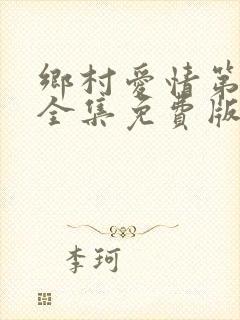 鄉村愛情第
全集免費版
李珂